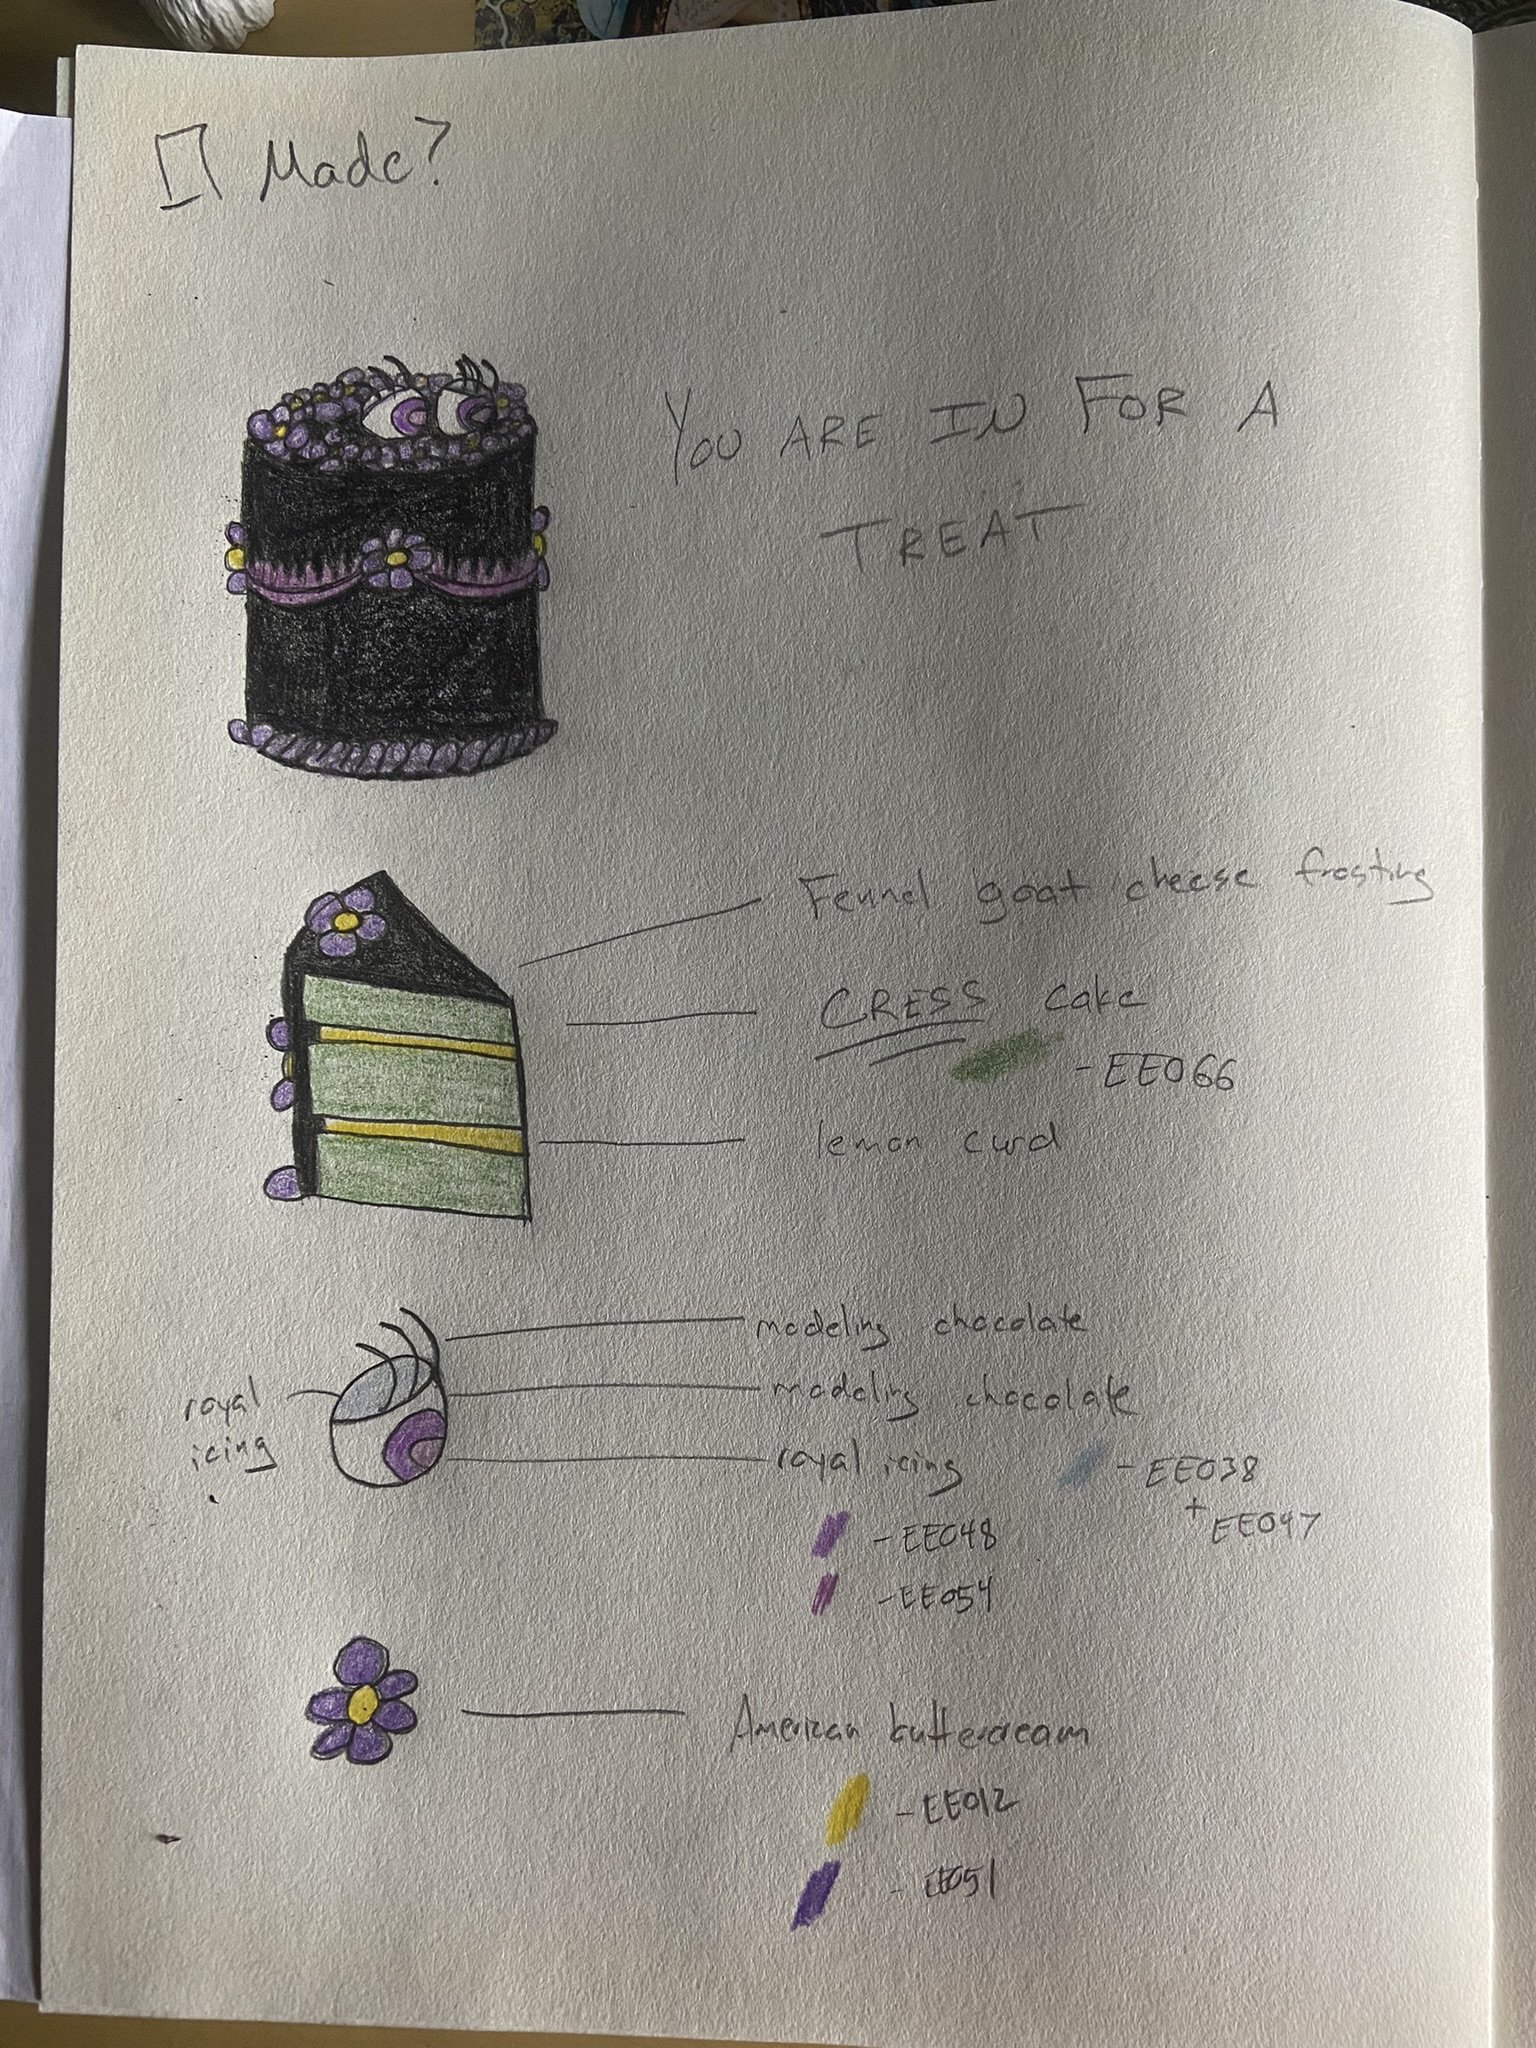 Made?
YOU ARE IN FOR A
TREAT
Fennel goat cheese frosting
CRESS cake
- EE066
lemon curd
modeling chocolate
modeling chocolate
royal
icing
royal icing
- EE038
+
EE047
- EE048
- EE054
American buttercream
- EE012
- EE051